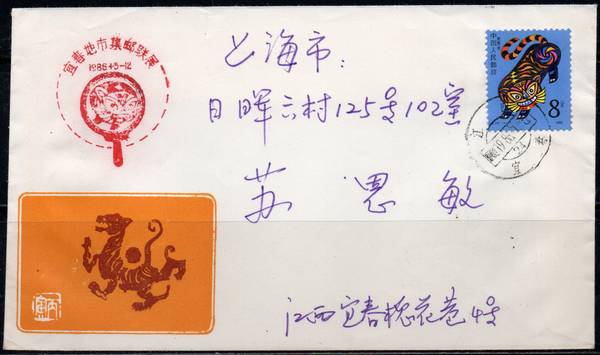 宜春地市集邮联展
1986.1.5-12
上海市:
日晖六村125号102室
苏恩敏
江西宜春槐花巷4号
中国人民邮政
8分
江西
宜春
丙寅